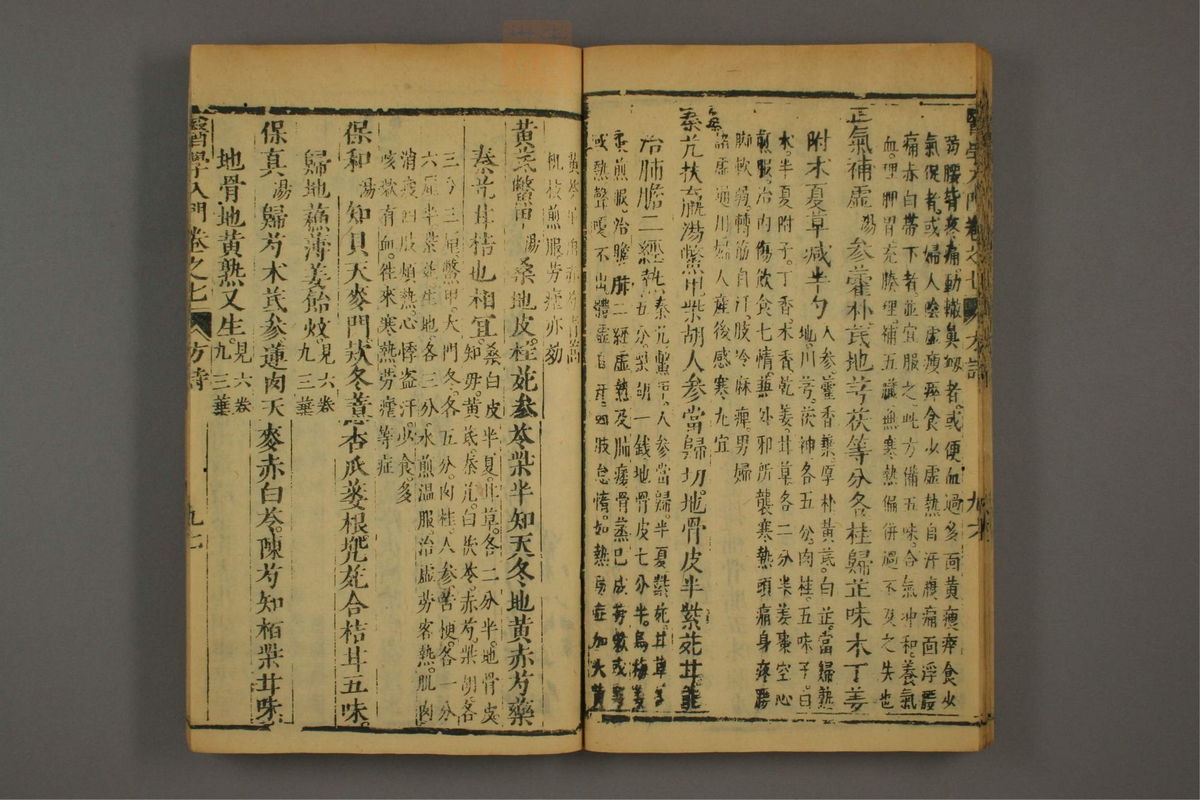 醫學入門卷之七 方詩
弱腰背疼痛動輒鼻衂者或便血過多面黃瘦瘁食少
氣促者或婦人陰虛瘦瘁食少虛熱自汗腹痛面浮腰
痛赤白帶下者並宜服之此方備五味合氣冲和養氣
血理脾胃充腠理補五臟無寒熱偏併過不及之失也
正氣補虛湯參藿朴芪地芎茯等分各桂歸芷味木丁姜
附木夏草减半勺人參藿香藥厚朴黃芪白芷當歸熟
地川芎茯神各五分肉桂五味子白
木半夏附子丁香木香乾姜甘草各二分半姜棗空心
煎服治内傷飲食七情兼外邪所襲寒熱頭痛身疼腰
脚軟弱轉筋自汗肢冷麻痺男婦
諸虛通用婦人產後感寒尤宜
秦艽扶羸湯鱉甲柴胡人參當歸切地骨皮半紫菀甘
治肺膽二經熱秦艽鱉甲人參當歸半夏紫菀甘草各
五分柴胡一錢地骨皮七分半烏梅姜
棗煎服治膽肺二經虛熱及肺痿骨蒸已成勞嗽或寒
或熱聲嗄不出體虛自汗四肢怠惰如熱勞症加大黃
桃枝煎服勞瘧亦効
黃芪鱉甲湯桑地皮桂菀參苓柴半知天冬地黃赤芍藥
秦艽甘桔也相宜桑白皮半夏甘草各二分半地骨皮
知母黃芪秦艽白茯苓赤芍柴胡各
三分三厘鱉甲天門冬各五分肉桂人參苦梗各一分
六厘半紫菀生地各三分水煎溫服治虛勞客熱肌肉
消瘦四肢煩熱心悸盗汗少食多
咳嗽有血徃來寒熱勞瘧等症
保和湯知貝天麥門欵冬薏杏瓜蔞根兠菀合桔甘五味
歸地蘓薄姜飴炆見六卷九三葉
保真湯歸芍术芪參蓮肉天麥赤白苓陳芍知栢柴甘味
地骨地黃熟又生見六卷九三葉
醫學入門卷之七 方詩 九七